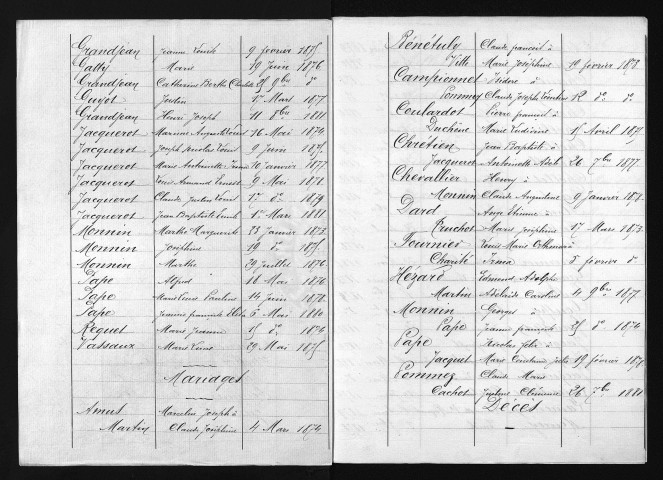 Grandjean Jeanne Louise 9 février 1875
Gatty Marie 29 Juin 1876
Grandjean Catherine Berthe Clotilde 25 9bre do
Guyot Justin 17 Mars 1877
Grandjean Henri Joseph 11 8bre 1881
Jacquerot 16 Mai 1874
Jacquerot Joseph Nicolas Louis 9 Juin 1875
Jacquerot Marie Antoinette 20 Janvier 1877
Jacquerot Louis Armand Ernest 9 Mai 1878
Jacquerot Claude Justin Louis do 1879
Jacquerot Jean Baptiste 1er Mars 1881
Monnin Marthe Marguerite 23 Janvier 1873
Monnin Joséphine 19 do 1875
Monnin Marthe 29 Juillet 1876
Pape Alfred 16 Mai 1876
Pape Marie Louise Pauline 14 Juin 1878
Pape Jeanne françoise 6 Mai 1880
Requet Marie Jeanne 15 do 1874
Vassaux Marie 29 Mai 1875
Mariages
Amet Marcelin Joseph à
Martin Claude Joséphine 4 Mars 1874
Bénétuly Claude françois à
Vitte Marie Joséphine 10 février 1878
Campionnet Isidore à
Pommey Claude Joseph 12 do do
Coulardot Pierre françois à
Duchêne Marie 15 Avril 1875
Chrétien Jean Baptiste à
Jacquerot Antoinette 26 7bre 1877
Chevallier Henry à
Monnin Claude Augustine 9 Janvier 1875
Dard Ange Etienne à
Cruchot Marie Joséphine 17 Mars 1873
Tournier Louis Marie
Charité Irma 5 février do
Hézard Edmond Adolphe
Martin Adélaïde Caroline 4 9bre 1877
Monnin Georges à
Pape Jeanne françoise 25 do 1874
Pape Nicolas
Jacquet Marie 19 février 1875
Pommey Claude Marie
Cachot Justine Clémence 26 7bre 1881
Décès